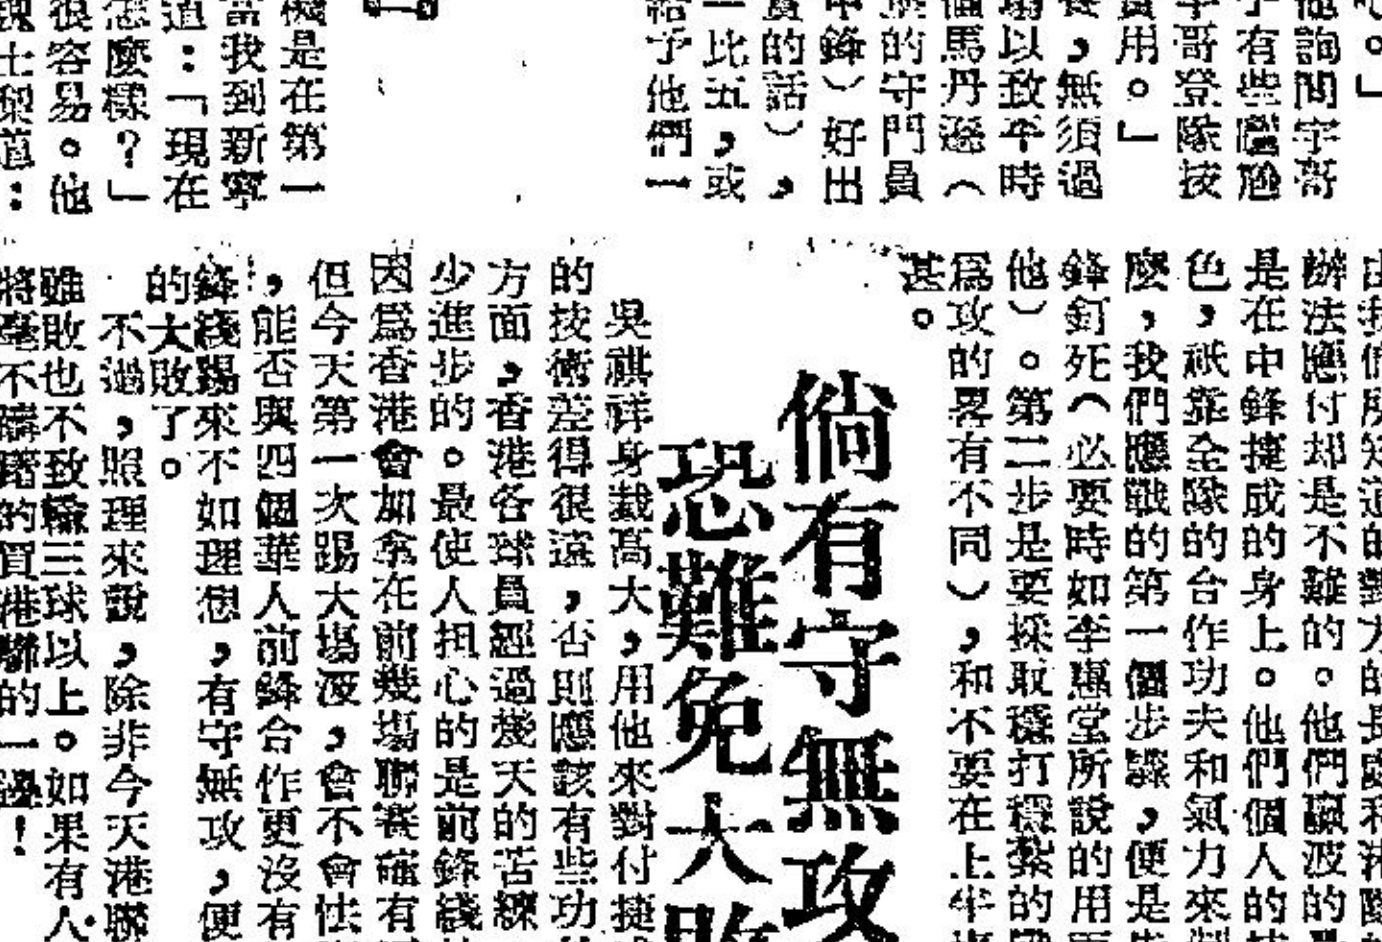 心。」
他詢問宇哥
子有些尷尬
宇哥登隊技
實用。」
養，無須過
場以致平時
個馬丹遜（
的守門員
中鋒）好出
實的話），
一比五，或
給予他們一
機是在第一
當我到新寧
道：「現在
怎麼樣？」
很容易。他
士梨道：
由我們所知道的對方的長處和港隊的
辦法應付却是不難的。他們贏波的
是在中鋒捷成的身上。他們個人的技
色，祇靠全隊的合作功夫和氣力來
麼，我們應戰的第一個步驟，便是先
鋒釘死（必要時如李惠堂所說的用兩
他）。第二步是要採取穩打穩紮的
爲攻的畧有不同），和不要在上半塲
甚。
倘有守無攻
恐難免大敗
吳祺祥身裁高大，用他來對付捷成
的技術差得很遠，否則應該有些功
方面，香港各球員經過幾天的苦練
少進步的。最使人担心的是前鋒綫
因爲香港會加拿在前幾塲聯賽確有
但今天第一次踢大塲波，會不會怯
，能否與四個華人前鋒合作更沒有
鋒綫踢來不如理想，有守無攻，便
的大敗了。
不過，照理來說，除非今天港聯
雖敗也不致輸三球以上。如果有人
將毫不躊躇的買港聯的一邊！